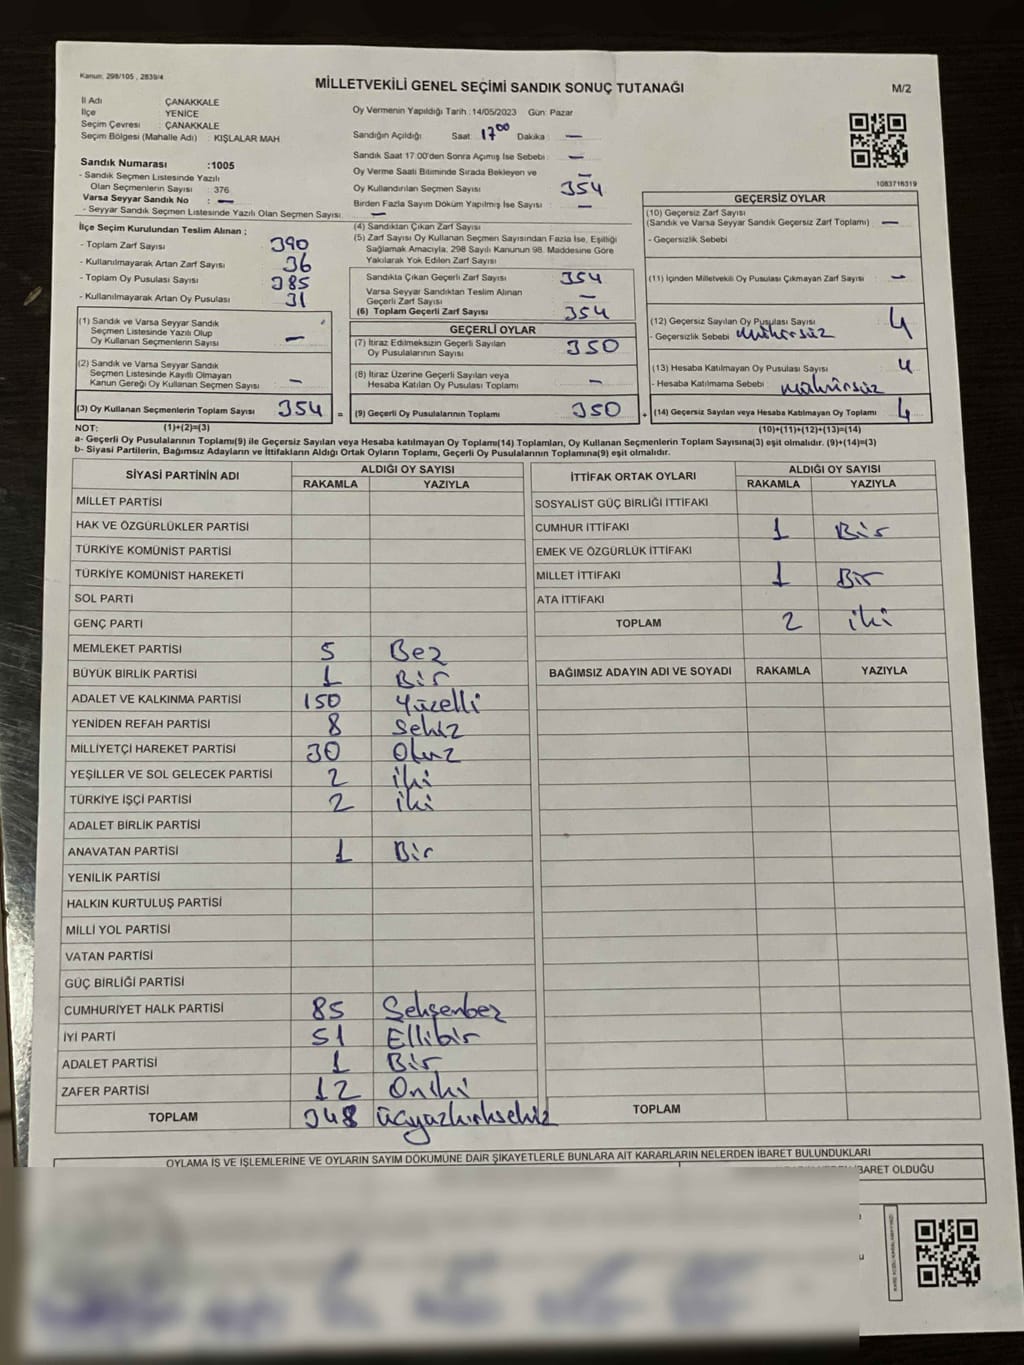 Kanun: 298/105 , 2839/4
MİLLETVEKİLİ GENEL SEÇİMİ SANDIK SONUÇ TUTANAĞI
M/2
İl Adı : ÇANAKKALE
İlçe : YENİCE
Seçim Çevresi : ÇANAKKALE
Seçim Bölgesi (Mahalle Adı) : KIŞLALAR MAH
Sandık Numarası :1005
- Sandık Seçmen Listesinde Yazılı
Olan Seçmenlerin Sayısı : 376
Varsa Seyyar Sandık No : —
- Seyyar Sandık Seçmen Listesinde Yazılı Olan Seçmen Sayısı : —
Oy Vermenin Yapıldığı Tarih : 14/05/2023 Gün: Pazar
Sandığın Açıldığı Saat 17 00 Dakika : —
Sandık Saat 17:00'den Sonra Açımış İse Sebebi : —
Oy Verme Saati Bitiminde Sırada Bekleyen ve —
Oy Kullandırılan Seçmen Sayısı 354
Birden Fazla Sayım Döküm Yapılmış İse Sayısı : —
1083716319
İlçe Seçim Kurulundan Teslim Alınan ;
- Toplam Zarf Sayısı : 390
- Kullanılmayarak Artan Zarf Sayısı : 36
- Toplam Oy Pusulası Sayısı : 385
- Kullanılmayarak Artan Oy Pusulası : 31
(1) Sandık ve Varsa Seyyar Sandık
Seçmen Listesinde Yazılı Olup
Oy Kullanan Seçmenlerin Sayısı : —
(2) Sandık ve Varsa Seyyar Sandık
Seçmen Listesinde Kayıtlı Olmayan
Kanun Gereği Oy Kullanan Seçmen Sayısı : —
(3) Oy Kullanan Seçmenlerin Toplam Sayısı 354 =
(4) Sandıktan Çıkan Zarf Sayısı
(5) Zarf Sayısı Oy Kullanan Seçmen Sayısından Fazla İse, Eşitliği
Sağlamak Amacıyla, 298 Sayılı Kanunun 98. Maddesine Göre
Yakılarak Yok Edilen Zarf Sayısı :
Sandıkta Çıkan Geçerli Zarf Sayısı 354
Varsa Seyyar Sandıktan Teslim Alınan
Geçerli Zarf Sayısı —
(6) Toplam Geçerli Zarf Sayısı 354
GEÇERLİ OYLAR
(7) İtiraz Edilmeksizin Geçerli Sayılan
Oy Pusulalarının Sayısı 350
(8) İtiraz Üzerine Geçerli Sayılan veya
Hesaba Katılan Oy Pusulası Toplamı —
(9) Geçerli Oy Pusulalarının Toplamı 350 +
GEÇERSİZ OYLAR
(10) Geçersiz Zarf Sayısı
(Sandık ve Varsa Seyyar Sandık Geçersiz Zarf Toplamı) —
- Geçersizlik Sebebi
(11) İçinden Milletvekili Oy Pusulası Çıkmayan Zarf Sayısı —
(12) Geçersiz Sayılan Oy Pusulası Sayısı 4
- Geçersizlik Sebebi mühürsüz
(13) Hesaba Katılmayan Oy Pusulası Sayısı 4
- Hesaba Katılmama Sebebi mühürsüz
(14) Geçersiz Sayılan veya Hesaba Katılmayan Oy Toplamı 4
NOT: (1)+(2)=(3) (10)+(11)+(12)+(13)=(14)
a- Geçerli Oy Pusulalarının Toplamı(9) ile Geçersiz Sayılan veya Hesaba katılmayan Oy Toplamı(14) Toplamları, Oy Kullanan Seçmenlerin Toplam Sayısına(3) eşit olmalıdır. (9)+(14)=(3)
b- Siyasi Partilerin, Bağımsız Adayların ve İttifakların Aldığı Ortak Oyların Toplamı, Geçerli Oy Pusulalarının Toplamına(9) eşit olmalıdır.
SİYASİ PARTİNİN ADI ALDIĞI OY SAYISI
RAKAMLA YAZIYLA
MİLLET PARTİSİ
HAK VE ÖZGÜRLÜKLER PARTİSİ
TÜRKİYE KOMÜNİST PARTİSİ
TÜRKİYE KOMÜNİST HAREKETİ
SOL PARTİ
GENÇ PARTİ
MEMLEKET PARTİSİ 5 Beş
BÜYÜK BİRLİK PARTİSİ 1 Bir
ADALET VE KALKINMA PARTİSİ 150 Yüzelli
YENİDEN REFAH PARTİSİ 8 Sekiz
MİLLİYETÇİ HAREKET PARTİSİ 30 Otuz
YEŞİLLER VE SOL GELECEK PARTİSİ 2 iki
TÜRKİYE İŞÇİ PARTİSİ 2 iki
ADALET BİRLİK PARTİSİ
ANAVATAN PARTİSİ 1 Bir
YENİLİK PARTİSİ
HALKIN KURTULUŞ PARTİSİ
MİLLİ YOL PARTİSİ
VATAN PARTİSİ
GÜÇ BİRLİĞİ PARTİSİ
CUMHURİYET HALK PARTİSİ 85 Seksenbeş
İYİ PARTİ 51 Ellibir
ADALET PARTİSİ 1 Bir
ZAFER PARTİSİ 12 Oniki
TOPLAM 348 üçyüzkırksekiz
İTTİFAK ORTAK OYLARI ALDIĞI OY SAYISI
RAKAMLA YAZIYLA
SOSYALİST GÜÇ BİRLİĞİ İTTİFAKI
CUMHUR İTTİFAKI 1 Bir
EMEK VE ÖZGÜRLÜK İTTİFAKI
MİLLET İTTİFAKI 1 Bir
ATA İTTİFAKI
TOPLAM 2 iki
BAĞIMSIZ ADAYIN ADI VE SOYADI RAKAMLA YAZIYLA
TOPLAM
OYLAMA İŞ VE İŞLEMLERİNE VE OYLARIN SAYIM DÖKÜMÜNE DAİR ŞİKAYETLERLE BUNLARA AİT KARARLARIN NELERDEN İBARET BULUNDUKLARI
İBARET OLDUĞU